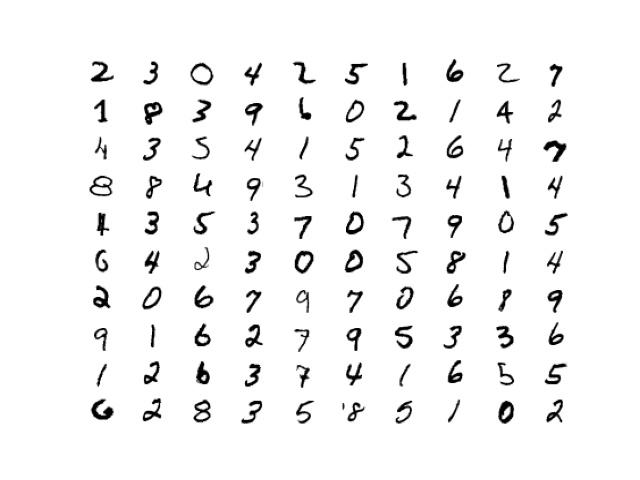 2 3 0 4 2 5 1 6 2 7
1 8 3 9 6 0 2 1 4 2
4 3 5 4 1 5 2 6 4 7
8 8 4 9 3 1 3 4 1 4
1 3 5 3 7 0 7 9 0 5
6 4 2 3 0 0 5 8 1 4
2 0 6 7 9 7 0 6 8 9
9 1 6 2 7 9 5 3 3 6
1 2 6 3 7 4 1 6 5 5
6 2 8 3 5 8 5 1 0 2